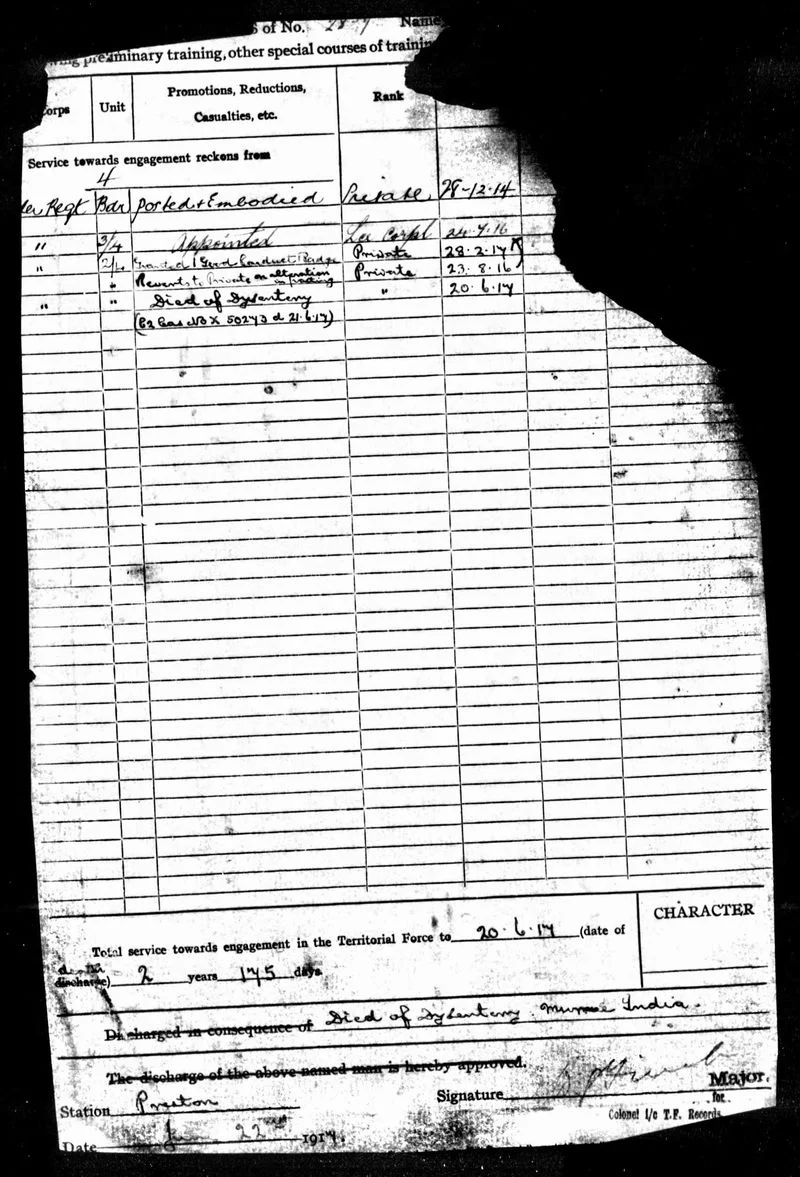 s of No. Name
wing preliminary training, other special courses of trainin
Corps Unit Promotions, Reductions, Casualties, etc. Rank
Service towards engagement reckons from
4
der Regt Bdr posted & Embodied Private 28-12-14
" 3/4 Appointed Lce Corpl 24.7.16
" 2/4 Granted 1 Good Conduct Badge Private 28.2.17
" Reverts to Private on alteration in posting Private 23.8.16
" " Died of Dysentery " 20.6.17
(E2 Cas No X 50273 d 21.6.17)
CHARACTER
Total service towards engagement in the Territorial Force to 20.6.17 (date of
discharge) 2 years 175 days
Discharged in consequence of Died of Dysentery Murree India.
The discharge of the above named man is hereby approved.
Signature Major.
for
Station Preston
Colonel i/c T.F. Records.
Date 22 1917.